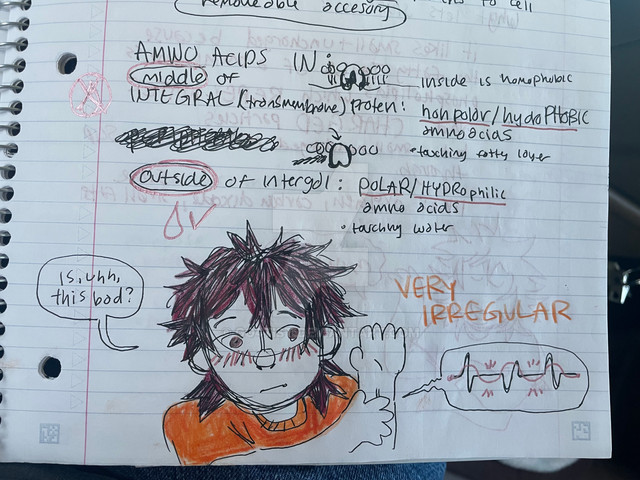 to cell
removeable accesory
AMINO ACIDS IN:
middle of
INTEGRAL (transmembrane) Protein:
inside is homophobic
nonpolar/hydroPHOBIC
amno acids
• touching fatty layer
outside of intergal: POLAR/HYDROphilic
amno acids
• touching water
Is, uhh,
this bad?
VERY
IRREGULAR